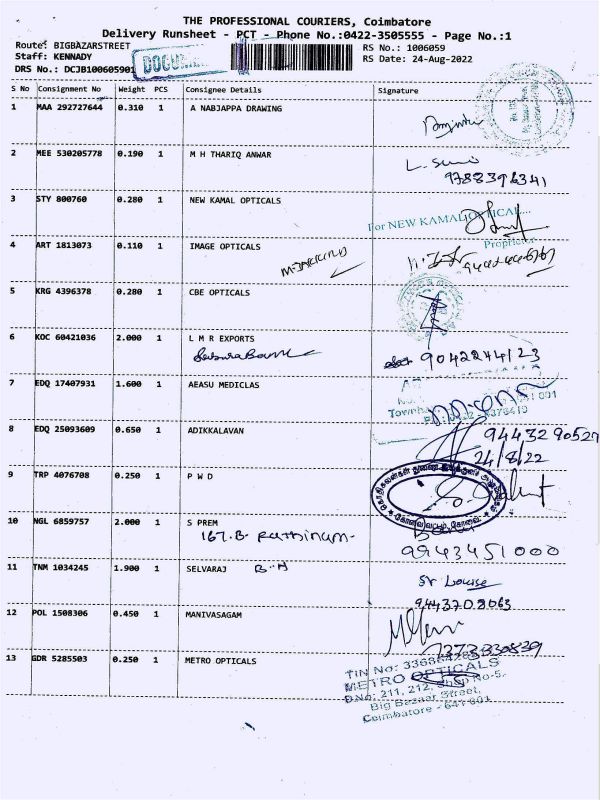 THE PROFESSIONAL COURIERS, Coimbatore
Delivery Runsheet - PCT - Phone No.:0422-3505555 - Page No.:1
Route: BIGBAZARSTREET
Staff: KENNADY
DRS No.: DCJB100605901
RS No.: 1006059
RS Date: 24-Aug-2022
S No Consignment No Weight PCS Consignee Details Signature
1 MAA 292727644 0.310 1 A NABJAPPA DRAWING
2 MEE 530205778 0.190 1 M H THARIQ ANWAR
9788396341
3 STY 800760 0.280 1 NEW KAMAL OPTICALS
For NEW KAMAL OPTICAL
Proprietor
4 ART 1813073 0.110 1 IMAGE OPTICALS
5 KRG 4396378 0.280 1 CBE OPTICALS
6 KOC 60421036 2.000 1 L M R EXPORTS
9042244123
7 EDQ 17407931 1.600 1 AEASU MEDICLAS
8 EDQ 25093609 0.650 1 ADIKKALAVAN
9443290527
24/8/22
9 TRP 4076708 0.250 1 P W D
10 NGL 6859757 2.000 1 S PREM
167. B Rathinam
9943451000
11 TNM 1034245 1.900 1 SELVARAJ
Sr Louise
9443708063
12 POL 1508306 0.450 1 MANIVASAGAM
7373830839
13 GDR 5285503 0.250 1 METRO OPTICALS
TIN No:
METRO OPTICALS
D.No: 211, 212, Shop No-5,
Big Bazaar Street,
Coimbatore - 641 001